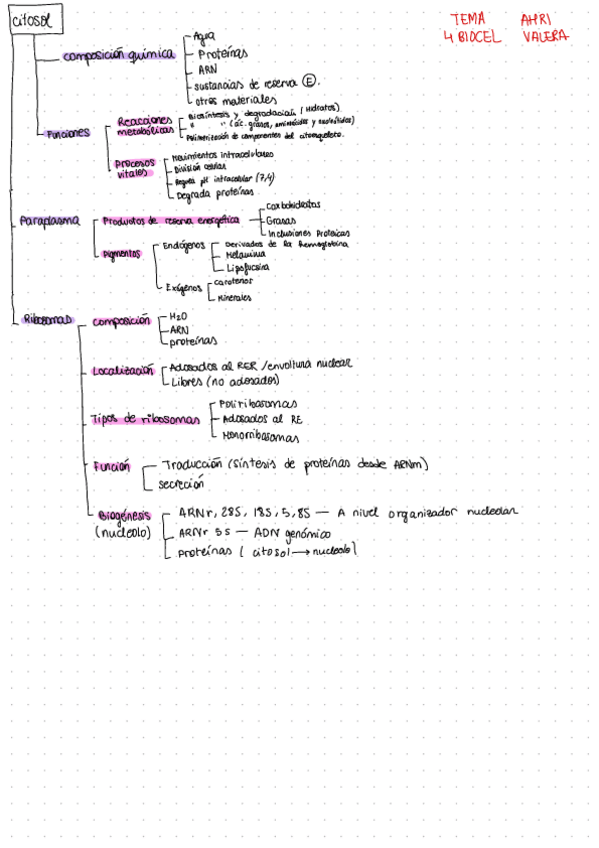 citosol
TEMA AHRI
4 BIOCEL VALERA
composición química
Agua
Proteínas
ARN
sustancias de reserva (E).
otros materiales
Funciones
Reacciones metabólicas
Biosíntesis y degradación (Hidratos)
" " (ác. grasos, aminoácidos y nucleótidos)
Polimerización de componentes del citoesqueleto.
Procesos vitales
Movimientos intracelulares
División celular
Regula pH intracelular (7,4)
Degrada proteínas
Paraplasma
Productos de reserva energética
Carbohidratos
Grasas
Inclusiones Proteicas
Pigmentos
Endógenos
Derivados de la hemoglobina
Melanina
Lipofucsina
Exógenos
carotenos
Minerales
Ribosomas
composición
H2O
ARN
proteínas
Localización
Adosados al RER / envoltura nuclear
Libres (no adosados)
Tipos de ribosomas
Polirribosomas
Adosados al RE
Monorribosomas
Función
Traducción (síntesis de proteínas desde ARNm)
secreción
Biogénesis
(nucleolo)
ARNr, 28S, 18S, 5,8S — A nivel organizador nucleolar
ARNr 5S — ADN genómico
proteínas ( citosol → nucleolo)